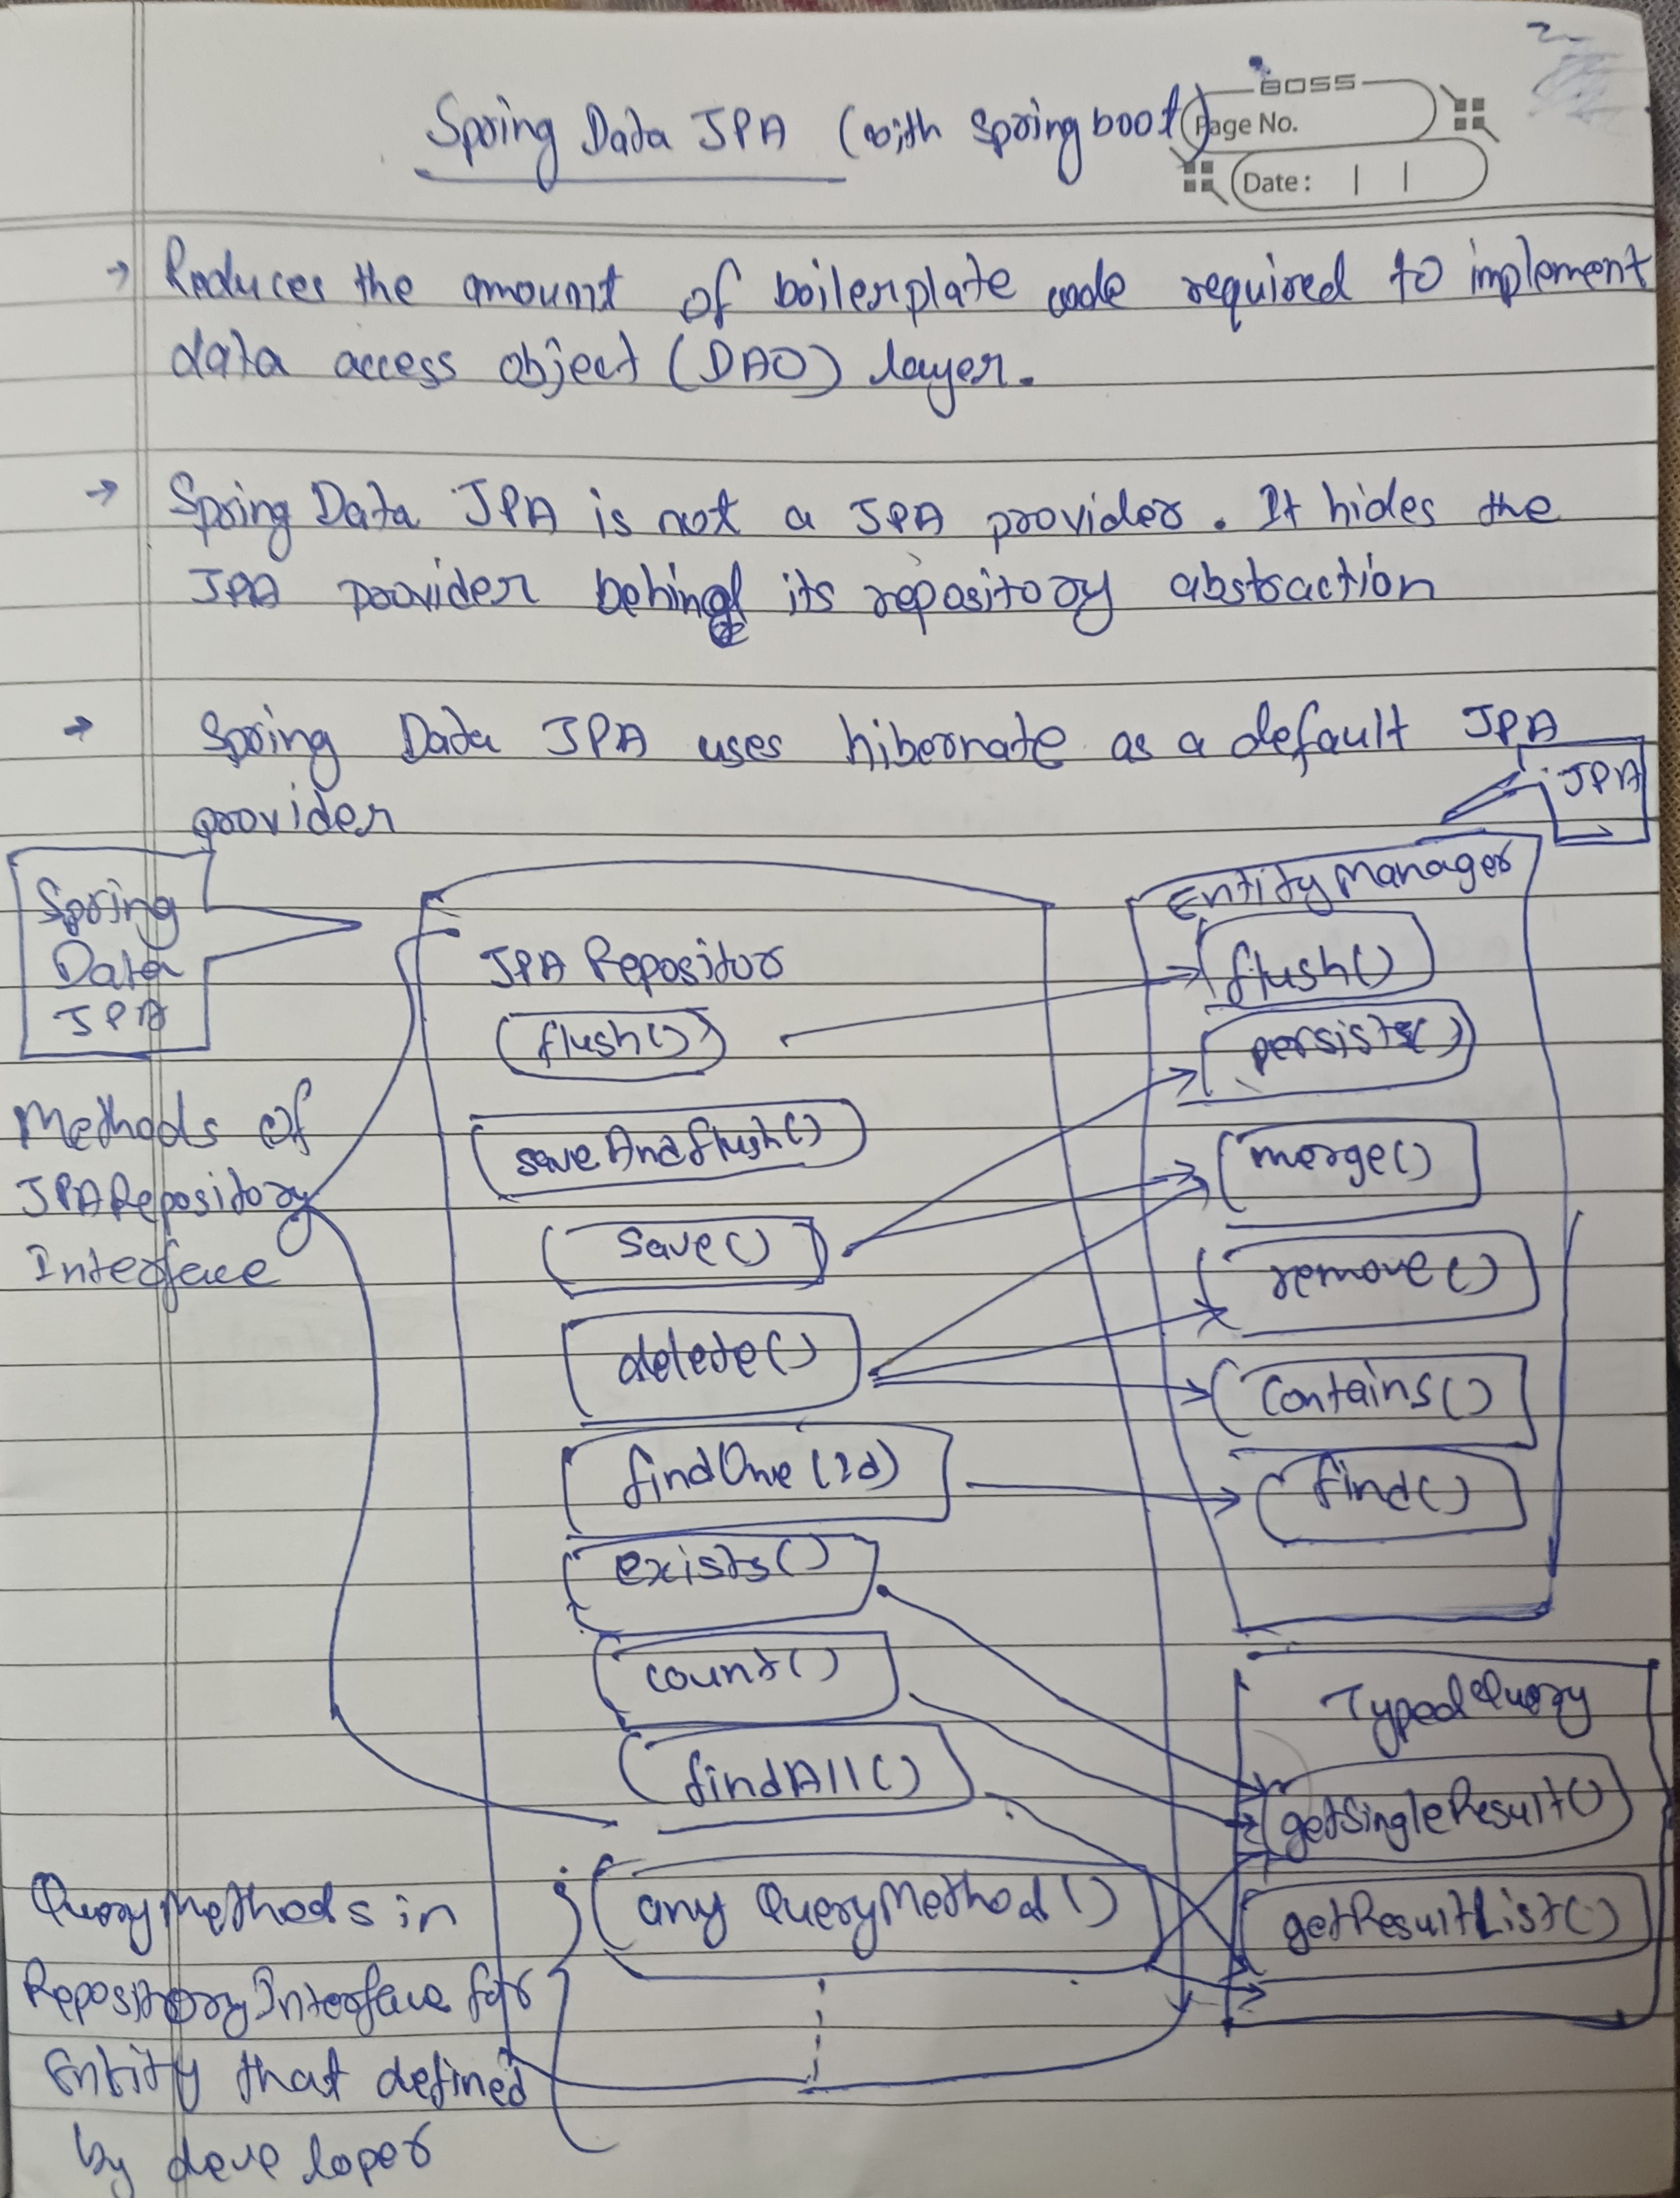 BOSS
Page No.
Date:
Spring Data JPA (with springboot)
→ Reduces the amount of boilerplate code required to implement
data access object (DAO) layer.
→ Spring Data JPA is not a JPA provider. It hides the
JPA provider behind its repository abstraction
→ Spring Data JPA uses hibernate as a default JPA
provider
JPA
Spring
Data
JPA
JPA Repositor
flush()
saveAndflush()
save()
delete()
findOne(Id)
exists()
count()
findAll()
any QueryMethod()
EntityManager
flush()
persists()
merge()
remove()
Contains()
find()
TypedQuery
getSingleResult()
getResultList()
Methods of
JPARepository
Interface
QueryMethods in
RepositoryInterface for
Entity that defined
by developer